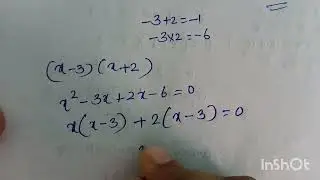 -3+2=-1
-3×2=-6
(x-3)(x+2)
x²-3x+2x-6=0
x(x-3)+2(x-3)=0
InShOt